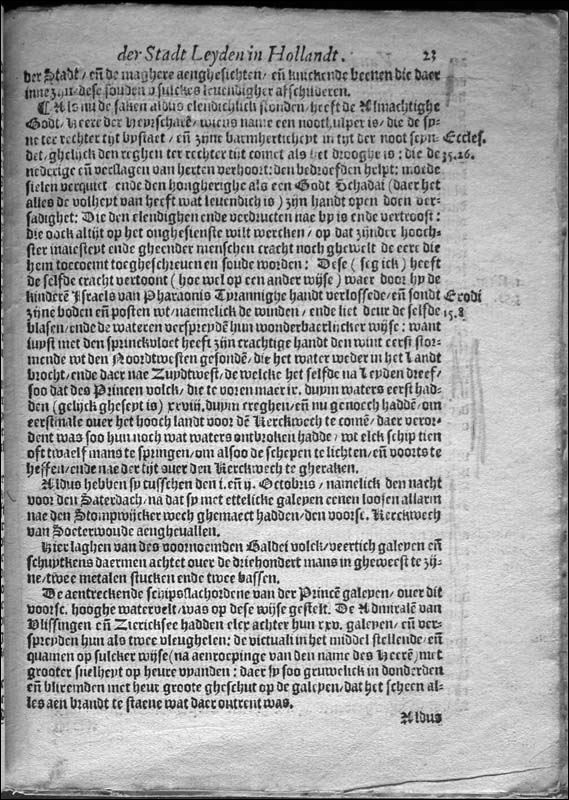 der Stadt Leyden in Hollandt. 23
der Stadt/ eñ de maghere aenghesichten/ eñ knickende beenen die daer
inne zijn/ dese souden v sulckes levendigher afschilderen.
¶ Als nu de saken aldus elendichlich stonden/ heeft de Almachtighe
Godt/ Heere der Heyrschare/ wiens name een noothulper is/ die de sy-
ne tee rechter tijt bystaet/ eñ zijne barmherticheyt in tijt der noot seyn- Eccles.
det/ ghelijck den reghen ter rechter tijt comet als het drooghe is: die de 35.26.
nederige eñ verslagen van herten verhoort: den bedroefden helpt: moede
sielen verquict ende den hongherighe als een Godt Schadai (daer het
alles de volheyt van heeft wat levendich is) zijn handt open doen ver-
sadighet: Die den elendighen ende verdructen nae by is ende vertroost:
die oock altijt op het onghesienste wilt wercken/ op dat zijnder hooch-
ster maiesteyt ende gheender menschen cracht noch ghewelt de eere die
hem toecoemt toegheschreven en soude worden: Dese (seg ick) heeft
de selfde cracht vertoont (hoe wel op een ander wijse) waer door hy de
kinderē Israels van Pharaonis Tyrannighe handt verlossede/ eñ sondt Exodi
zijne boden eñ posten wt/ naemelick de winden/ ende liet deur de selfde 15.8
blasen/ ende de wateren verspreydē hun wonderbaerlicker wijse: want
juyst met den sprinckvloet heeft zijn crachtige handt den wint eerst stor-
mende wt den Noordtwesten gesondē/ die het water weder in het Landt
brocht/ ende daer nae Zuydtwest/ de welcke het selfde na Leyden dreef/
soo dat des Princen volck/ die te voren maer ix. duym waters eerst had-
den (gelijck gheseyt is) xxviij. duym creghen/ eñ nu genoech haddē/ om
eerstmale over het hooch landt voor dē Kerckwech te comē/ daer veror-
dent was soo hun noch wat waters ontbroken hadde/ wt elck schip tien
oft twaelf mans te springen/ om alsoo de schepen te lichten/ eñ voorts te
heffen/ ende nae der tijt over den Kerckwech te gheraken.
Aldus hebben sy tusschen den i. eñ ij. Octobris/ namelick den nacht
voor den Saterdach/ na dat sy met ettelicke galeyen eenen loosen allarm
nae den Stompwijcker wech ghemaect hadden/ den voorsc. Kerckwech
van Soeterwoude aenghevallen.
Hier laghen van des voornoemden Baldei volck/ veertich galeyen eñ
schuytkens daermen achtet over de driehondert mans in gheweest te zij-
ne/ twee metalen stucken ende twee bassen.
De aentreckende schipsslachordene van der Princē galeyen/ over dit
voorsc. hooghe watervelt/ was op dese wijse gestelt. De Admiralē van
Vlissingen eñ Ziericksee hadden elcx achter hun xxv. galeyen/ eñ ver-
spreyden hun als twee vleughelen: de victuali in het middel stellende/ eñ
quamen op sulcker wijse (na aenroepinge van den name des Heerē) met
grooter snelheyt op heure vyanden: daer sy soo gruwelick in donderden
eñ blixemden met heur groote gheschut op de galeyen/ dat het scheen al-
les aen brandt te staene wat daer ontrent was.
Aldus